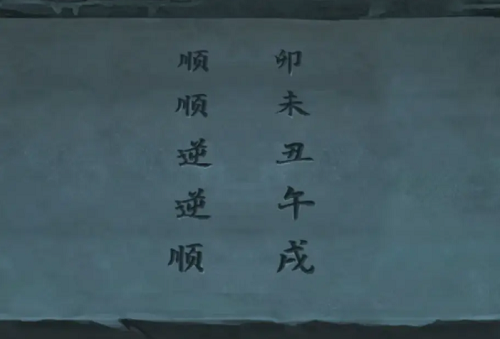 顺 卯
顺 未
逆 丑
逆 午
顺 戌